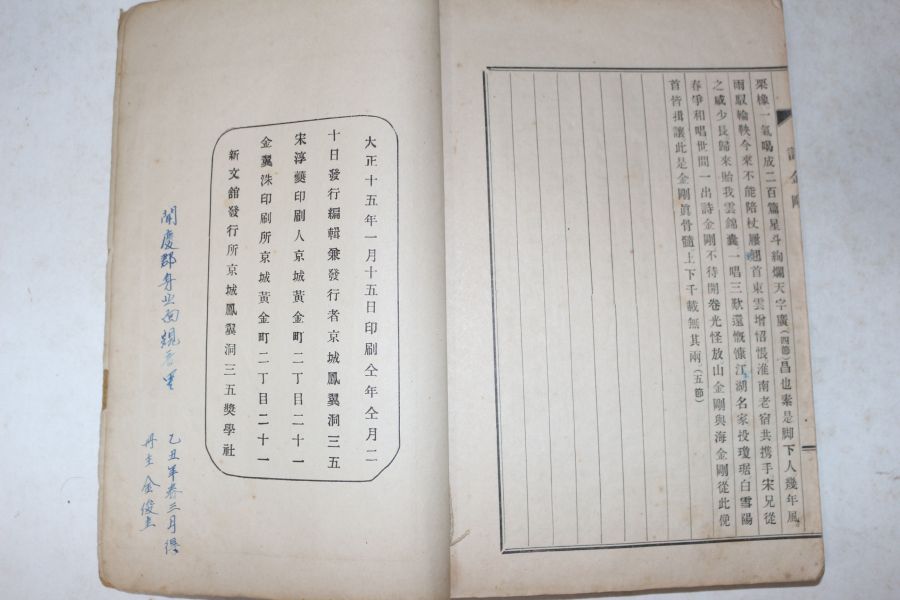 詩金剛
栗橡一氣喝成二百篇星斗絢爛天字廣(四節)昌也素是脚下人幾年風
雨馭輪鞅今來不能陪杖屨翹首東雲增怊悵淮南老宿共携手宋兄從
之咸少長歸來貽我雲錦囊一唱三歎還慨慷江湖名家投瓊琚白雪陽
春爭和唱世間一出詩金剛不待開卷光怪放山金剛與海金剛從此俛
首皆揖讓此是金剛眞骨髓上下千載無其兩(五節)
大正十五年一月十五日印刷仝年仝月二
十日發行編輯兼發行者京城鳳翼洞三五
宋淳夔印刷人京城黃金町二丁目二十一
金翼洙印刷所京城黃金町二丁目二十一
新文舘發行所京城鳳翼洞三五獎學社
聞慶郡身北面
乙丑年春三月得
丹圭 金俊圭